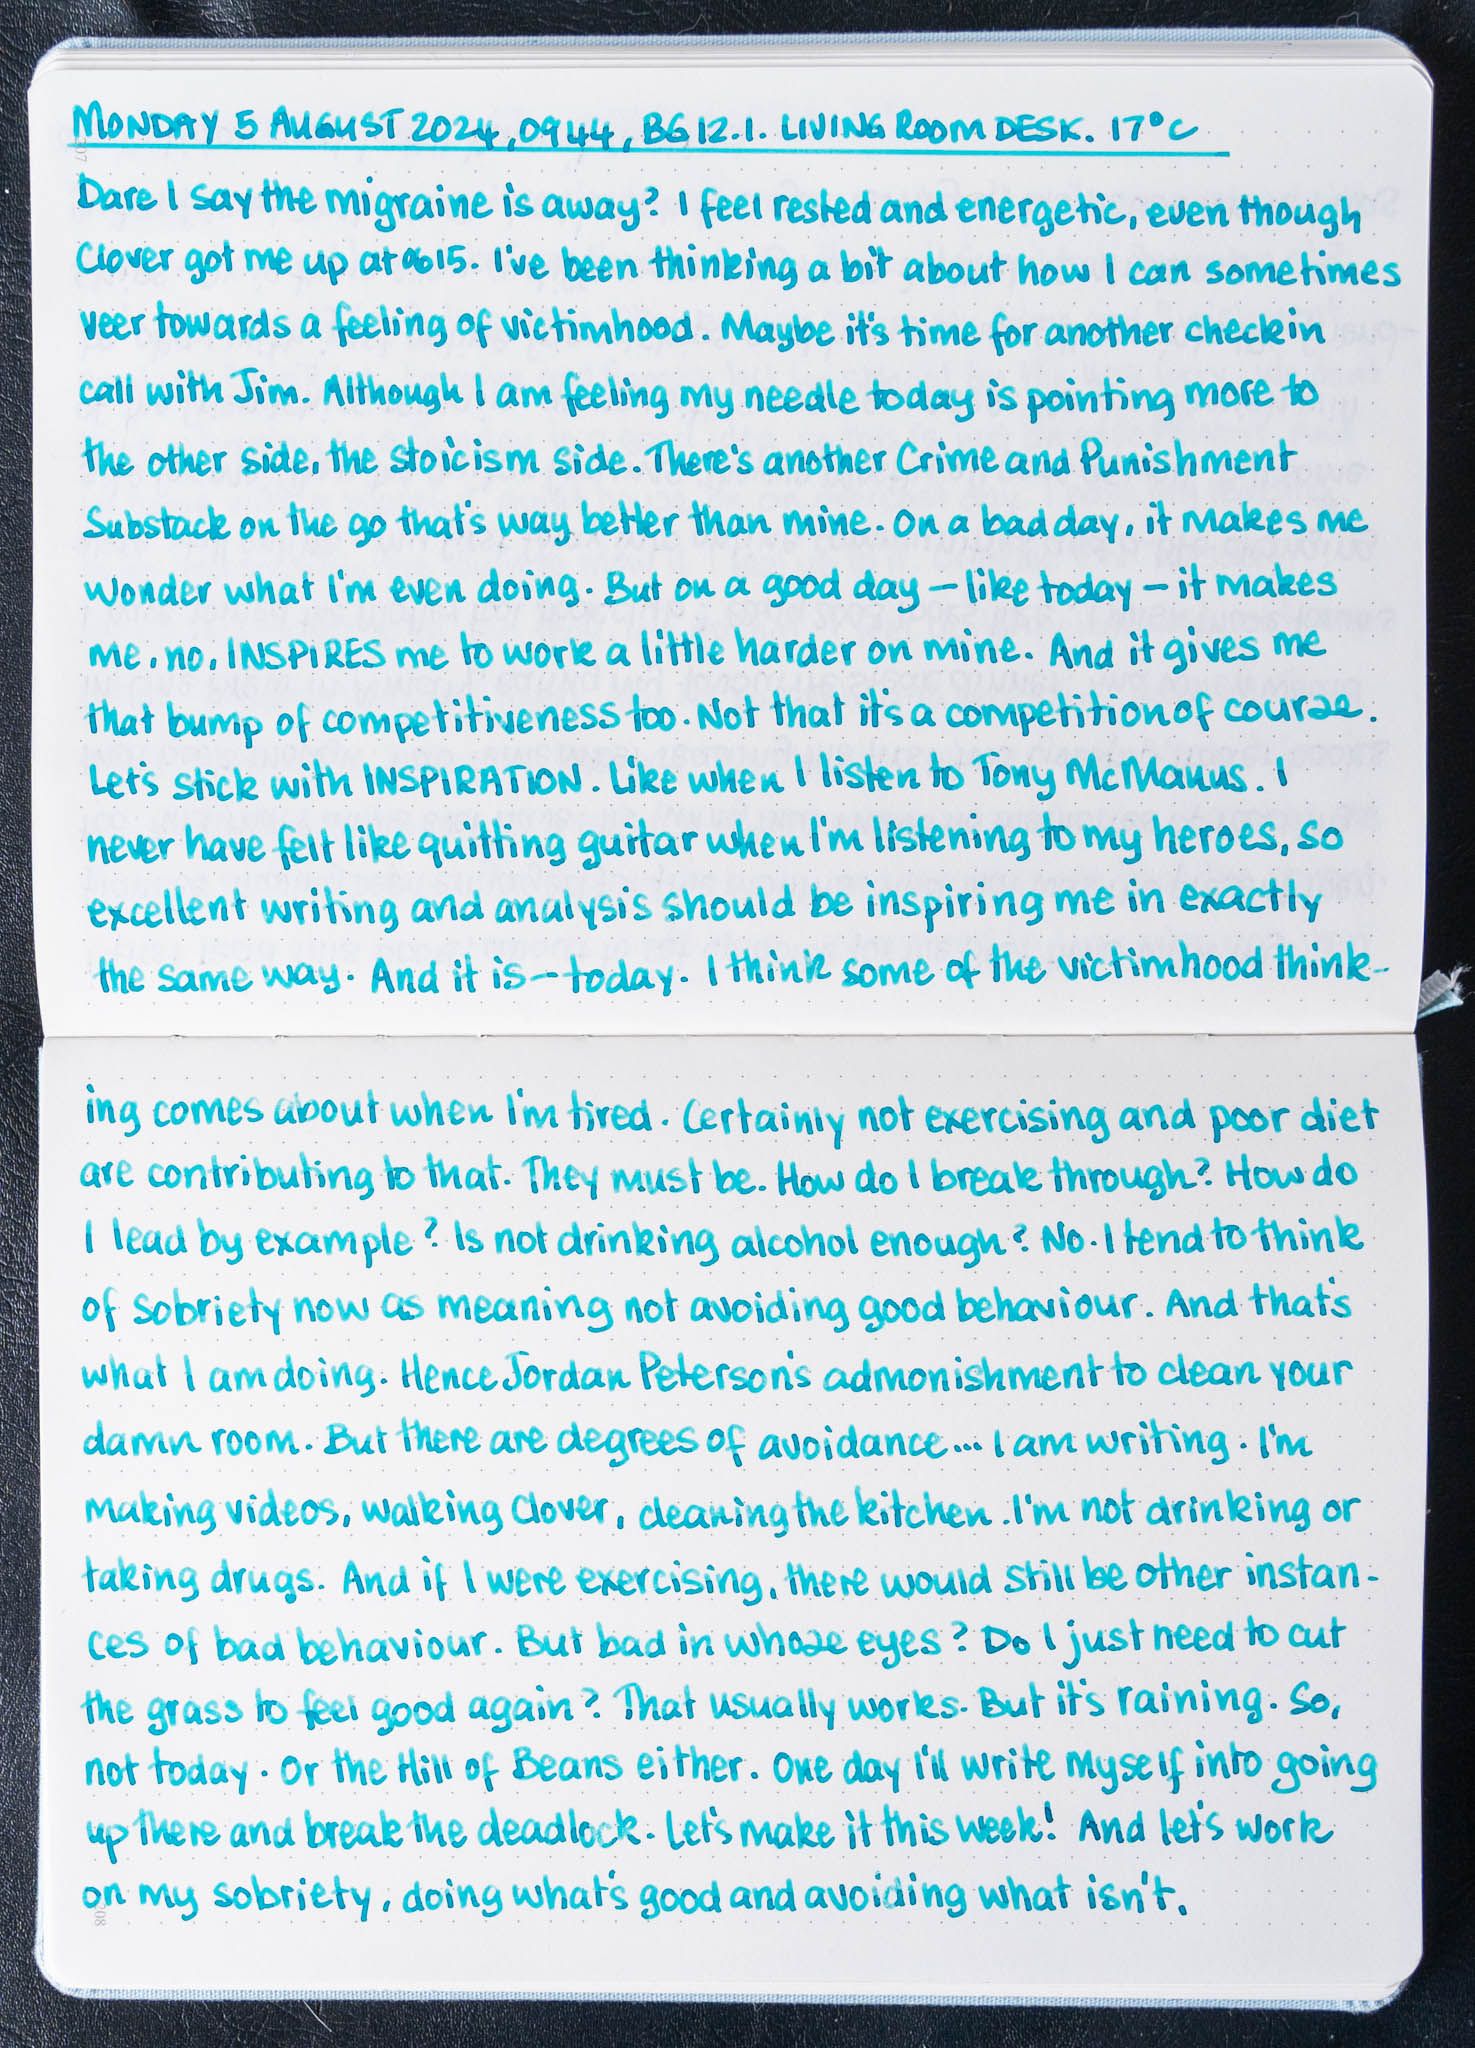 MONDAY 5 AUGUST 2024, 0944, BG 12.1. LIVING ROOM DESK. 17°C
207
Dare I say the migraine is away? I feel rested and energetic, even though
Clover got me up at 0615. I've been thinking a bit about how I can sometimes
veer towards a feeling of victimhood. Maybe it's time for another checkin
call with Jim. Although I am feeling my needle today is pointing more to
the other side, the stoicism side. There's another Crime and Punishment
Substack on the go that's way better than mine. On a bad day, it makes me
wonder what I'm even doing. But on a good day – like today – it makes
me, no, INSPIRES me to work a little harder on mine. And it gives me
that bump of competitiveness too. Not that it's a competition of course.
Let's stick with INSPIRATION. Like when I listen to Tony McManus. I
never have felt like quitting guitar when I'm listening to my heroes, so
excellent writing and analysis should be inspiring me in exactly
the same way. And it is – today. I think some of the victimhood think-
ing comes about when I'm tired. Certainly not exercising and poor diet
are contributing to that. They must be. How do I break through? How do
I lead by example? Is not drinking alcohol enough? No. I tend to think
of sobriety now as meaning not avoiding good behaviour. And that's
what I am doing. Hence Jordan Peterson's admonishment to clean your
damn room. But there are degrees of avoidance... I am writing. I'm
making videos, walking Clover, cleaning the kitchen. I'm not drinking or
taking drugs. And if I were exercising, there would still be other instan-
ces of bad behaviour. But bad in whose eyes? Do I just need to cut
the grass to feel good again? That usually works. But it's raining. So,
not today. Or the Hill of Beans either. One day I'll write myself into going
up there and break the deadlock. Let's make it this week! And let's work
on my sobriety, doing what's good and avoiding what isn't.
208